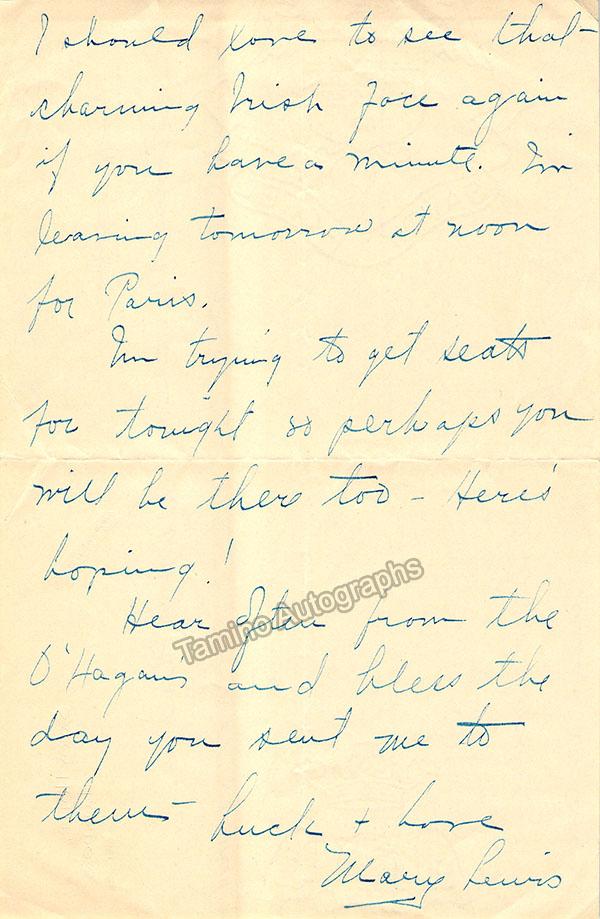 I should love to see that
charming Irish face again
if you have a minute. I'm
leaving tomorrow at noon
for Paris.
I'm trying to get seats
for tonight so perhaps you
will be there too - Here's
hoping!
Hear often from the
Tamino Autographs
O'Hagan's and bless the
day you sent me to
them - Luck + Love
Mary Lewis